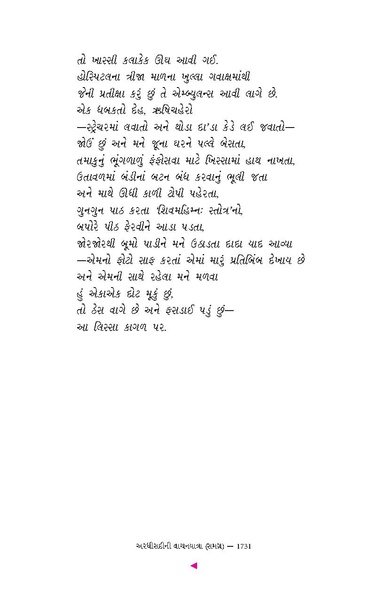 તો ખાસ્સી કલાકેક ઊંઘ આવી ગઈ.
હોસ્પિટલના ત્રીજા માળના ખુલ્લા ગવાક્ષમાંથી
જેની પ્રતીક્ષા કરું છું તે એમ્બ્યુલન્સ આવી લાગે છે.
એક ધબકતો દેહ, ઋષિચહેરો
—સ્ટ્રેચરમાં લવાતો અને થોડા દા'ડા કેડે લઈ જવાતો—
જોઉં છું અને મને જૂના ઘરને પલ્લે બેસતા,
તમાકુનું ભૂંગળાળું ફંફોસવા માટે ખિસ્સામાં હાથ નાખતા,
ઉતાવળમાં બંડીનાં બટન બંધ કરવાનું ભૂલી જતા
અને માથે ઊંધી કાળી ટોપી પહેરતા,
ગુનગુન પાઠ કરતા 'શિવમહિમ્નઃ સ્તોત્ર'નો,
બપોરે પીઠ ફેરવીને આડા પડતા,
જોરજોરથી બૂમો પાડીને મને ઉઠાડતા દાદા યાદ આવ્યા
—એમનો ફોટો સાફ કરતાં એમાં મારું પ્રતિબિંબ દેખાય છે
અને એમની સાથે રહેલા મને મળવા
હું એકાએક દોટ મૂકું છું,
તો ઠેસ વાગે છે અને ફસડાઈ પડું છું—
આ લિસ્સા કાગળ પર.
અરધીસદીની વાચનયાત્રા (સમગ્ર) — 1731